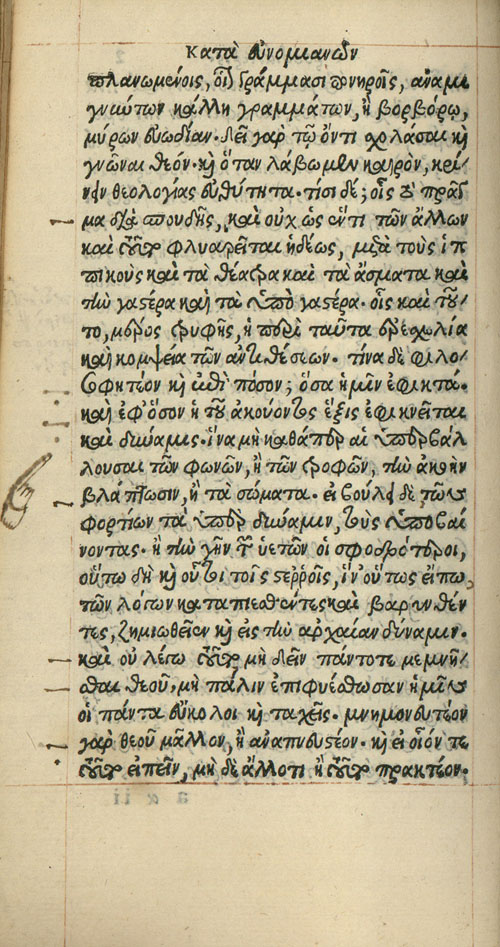 κατὰ εὐνομιανῶν
πλανωμένοις, οἷον γράμμασι πονηροῖς, ἀναμι
γνύντων κάλλη γραμμάτων, ἢ βορβόρῳ,
μύρων εὐωδίαν. δεῖ γὰρ τῷ ὄντι σχολάσαι κỳ
γνῶναι θεόν. κỳ ὅταν λάβωμεν καιρὸν, κρί/
νειν θεολογίας εὐθύτητα. τίσι δέ; οἷς τὸ πρᾶγ
μα διὰ σπουδῆς, καὶ οὐχ ὡς ἕν τι τῶν ἄλλων
καὶ τοῦτο φλυαρεῖται ἡδέως, μετὰ τοὺς ἱπ
πικοὺς καὶ τὰ θέατρα καὶ τὰ ᾄσματα καὶ
τὴν γαστέρα καὶ τὰ ὑπὸ γαστέρα. οἷς καὶ τοῦ/
το, μέρος τρυφῆς, ἡ περὶ ταῦτα ἐρεσχελία
καὶ κομψεία τῶν ἀντιθέσεων. τίνα δὲ φιλο/
σοφητέον κỳ ἐπὶ πόσον; ὅσα ἡμῖν ἐφικτά.
καὶ ἐφ' ὅσον ἡ τοῦ ἀκούοντος ἕξις ἐφικνεῖται
καὶ δύναμις. ἵνα μὴ καθάπερ αἱ ὑπερβάλ
λουσαι τῶν φωνῶν, ἢ τῶν τροφῶν, τὴν ἀκοὴν
βλάπτωσιν, ἢ τὰ σώματα. εἰ βούλει δὲ τῶν
φορτίων τὰ ὑπὲρ δύναμιν, τοὺς ὑποβαί
νοντας. ἢ τὴν γῆν τῶν ὑετῶν οἱ σφοδρότεροι,
οὕτω δὴ κỳ οὗτοι τοῖς στεῤῥοῖς, ἵν' οὕτως εἴπω
τῶν λόγων καταπιεσθέντες καὶ βαρυνθέν
τες, ζημιωθεῖεν κỳ εἰς τὴν ἀρχαίαν δύναμιν.
καὶ οὐ λέγω τοῦτο μὴ δεῖν πάντοτε μεμνῆ/
σθαι θεοῦ, μὴ πάλιν ἐπιφυέσθωσαν ἡμῖν
οἱ πάντα εὔκολοι κỳ ταχεῖς. μνημονευτέον
γὰρ θεοῦ μᾶλλον, ἢ ἀναπνευστέον. κỳ εἰ οἷόν τε
τοῦτο εἰπεῖν, μὴ δὲ ἄλλο τι ἢ τοῦτο πρακτέον.